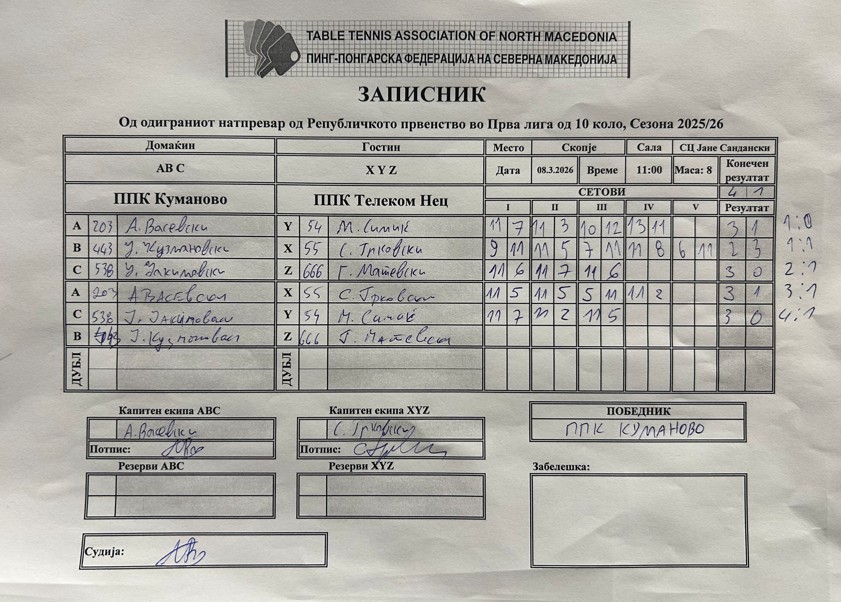 TABLE TENNIS ASSOCIATION OF NORTH MACEDONIA
ПИНГ-ПОНГАРСКА ФЕДЕРАЦИЈА НА СЕВЕРНА МАКЕДОНИЈА
ЗАПИСНИК
Од одиграниот натпревар од Републичкото првенство во Прва лига од 10 коло, Сезона 2025/26
Домаќин Гостин Место Скопје Сала СЦ Јане Сандански
A B C X Y Z Дата 08.3.2026 Време 11:00 Маса: 8 Конечен резултат
ППК Куманово ППК Телеком Нец СЕТОВИ 4 1
I II III IV V Резултат
A 203 А. Васевски Y 54 М. Симиќ 11 7 11 3 10 12 13 11 3 1 1:0
B 443 Ј. Кузмановски X 55 С. Трковски 9 11 11 5 7 11 11 8 6 11 2 3 1:1
C 538 Ј. Јакимовски Z 666 Г. Матевски 11 6 11 7 11 6 3 0 2:1
A 203 А Васевски X 55 С. Трковски 11 5 11 5 5 11 11 2 3 1 3:1
C 538 Ј. Јакимовски Y 54 М. Симиќ 11 7 11 2 11 5 3 0 4:1
B 443 Ј. Кузмановски Z 666 Г. Матевски
ДУБЛ ДУБЛ
Капитен екипа ABC Капитен екипа XYZ ПОБЕДНИК
А. Васевски С. Трковски ППК КУМАНОВО
Потпис: Потпис:
Резерви ABC Резерви XYZ Забелешка:
Судија: